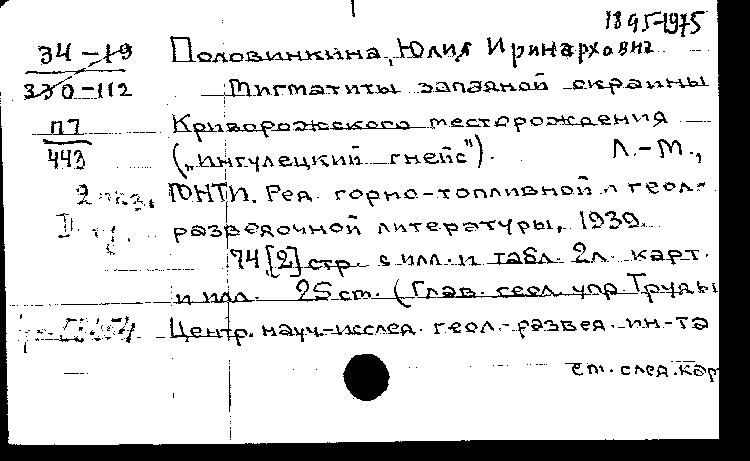 1895-1975
34-19
Половинкина, Юлия Иринарховна
330-112
Мигматиты западной окраины
П7
Криворожского месторождения
443
(„Ингулецкий гнейс"). Л.-М.,
2 экз.
ЮНТИ. Ред. горно-топливной и геол.-
разведочной литературы, 1939.
74 [2] стр. с илл. и табл. 2л. карт.
и илл. 25 cm. (Глав. геол. упр. Труды
Центр. науч.-исслед. геол.-развед. ин-та
см. след. кар